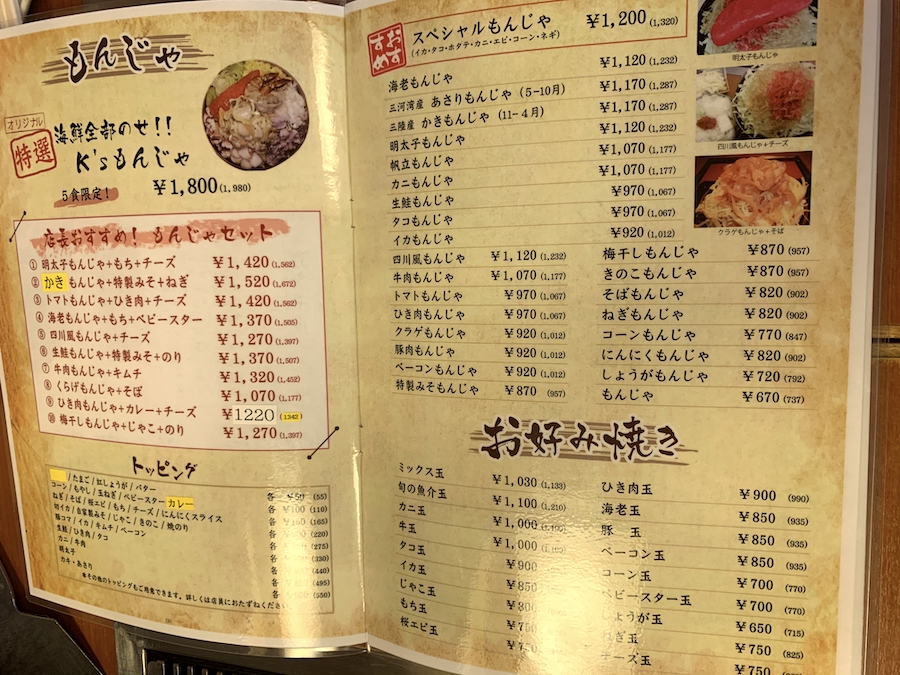 もんじゃ
オリジナル
特選
海鮮全部のせ!!
K'sもんじゃ
5食限定! ¥1,800(1,980)
店長おすすめ! もんじゃセット
① 明太子もんじゃ+もち+チーズ ¥1,420(1,562)
② かきもんじゃ+特製みそ+ねぎ ¥1,520(1,672)
③ トマトもんじゃ+ひき肉+チーズ ¥1,420(1,562)
④ 海老もんじゃ+もち+ベビースター ¥1,370(1,505)
⑤ 四川風もんじゃ+チーズ ¥1,270(1,397)
⑥ 生鮭もんじゃ+特製みそ+のり ¥1,370(1,507)
⑦ 牛肉もんじゃ+キムチ ¥1,320(1,452)
⑧ くらげもんじゃ+そば ¥1,070(1,177)
⑨ ひき肉もんじゃ+カレー+チーズ ¥1220(1342)
⑩ 梅干しもんじゃ+じゃこ+のり ¥1,270(1,397)
トッピング
/たまご/紅しょうが/バター 各 ¥50(55)
コーン/もやし/玉ねぎ/ベビースター カレー 各 ¥100(110)
ねぎ/そば/桜エビ/もち/チーズ/にんにくスライス 各 (165)
切イカ/自家製みそ/じゃこ/きのこ/焼のり 各 (220)
豚コマ/イカ/キムチ/ベーコン 各 (275)
生鮭/ひき肉/タコ 各 (330)
カニ/牛肉 各 (440)
明太子 各 (495)
カキ・あさり 各 (550)
※その他のトッピングもご用意できます。詳しくは店員におたずねください。
おすすめ
スペシャルもんじゃ ¥1,200(1,320)
(イカ・タコ・ホタテ・カニ・エビ・コーン・ネギ)
海老もんじゃ ¥1,120(1,232)
三河湾産 あさりもんじゃ (5-10月) ¥1,170(1,287)
三陸産 かきもんじゃ (11-4月) ¥1,170(1,287)
明太子もんじゃ ¥1,120(1,232)
帆立もんじゃ ¥1,070(1,177)
カニもんじゃ ¥1,070(1,177)
生鮭もんじゃ ¥970(1,067)
タコもんじゃ ¥970(1,067)
イカもんじゃ ¥920(1,012)
四川風もんじゃ ¥1,120(1,232)
牛肉もんじゃ ¥1,070(1,177)
トマトもんじゃ ¥970(1,067)
ひき肉もんじゃ ¥970(1,067)
クラゲもんじゃ ¥920(1,012)
豚肉もんじゃ ¥920(1,012)
ベーコンもんじゃ ¥920(1,012)
特製みそもんじゃ ¥870(957)
明太子もんじゃ
四川風もんじゃ+チーズ
クラゲもんじゃ+そば
梅干しもんじゃ ¥870(957)
きのこもんじゃ ¥870(957)
そばもんじゃ ¥820(902)
ねぎもんじゃ ¥820(902)
コーンもんじゃ ¥770(847)
にんにくもんじゃ ¥820(902)
しょうがもんじゃ ¥720(792)
もんじゃ ¥670(737)
お好み焼き
ミックス玉 ¥1,030(1,133)
旬の魚介玉 ¥1,100(1,210)
カニ玉 ¥1,000
牛玉 ¥1,000
タコ玉 ¥900
イカ玉 ¥850
じゃこ玉 ¥800
もち玉 ¥750
桜エビ玉
ひき肉玉 ¥900(990)
海老玉 ¥850(935)
豚 玉 ¥850(935)
ベーコン玉 ¥850(935)
コーン玉 ¥700(770)
ベビースター玉 ¥700(770)
しょうが玉 ¥650(715)
ねぎ玉 ¥750(825)
チーズ玉 ¥750